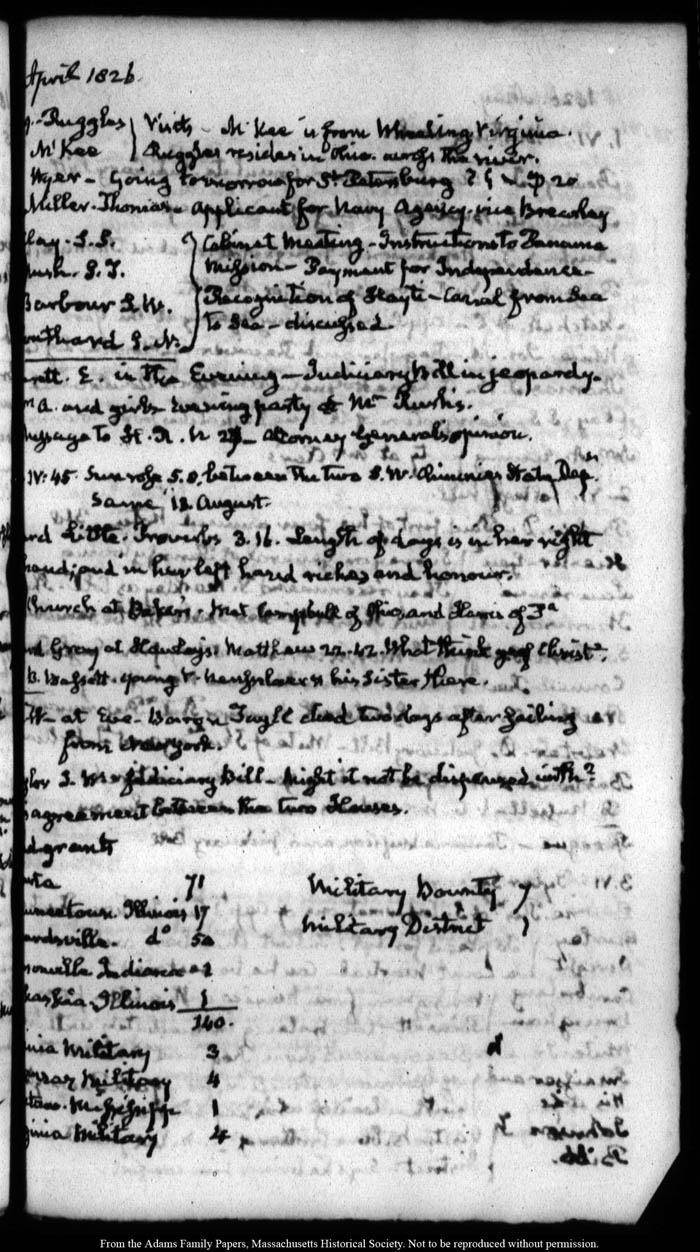 April 1826.
Ruggles Visits - McKee is from Wheeling Virginia.
McKee Ruggles resides in Ohio. across the river.
Wyer - Going tomorrow for St. Petersburg
Miller. Thomas - Applicant for Navy Agency. vice Brearley
Clay. S.S. Cabinet Meeting - Instructions to Panama
Rush. S.T. Mission - Payment for Independence -
Barbour S.W. Recognition of Hayti - Canal from Sea
Southard S.N. to Sea - discussed.
E. in the Evening - Judiciary Bill in jeopardy.
A. and girls - Evening party at Mr Rush's.
Message to H.R.U.S. Attorney General's opinion.
IV: 45. Sun rose 5.8. between the two S.W. Chimnies State Dept.
Same 18 August.
Little. Proverbs 3.16. Length of days is in her right
hand; and in her left hand riches and honour.
Church at Baker's. Met Campbell of Ohio, and Harris of Pa
Gray at Hawley's. Matthew 22.42. What think ye of Christ?
B. Bassett. young V. Rensselaer & his Sister there.
W - at Eve - Baron Tuyll died two days after sailing
from New York.
S. W - Judiciary Bill - Might it not be dispensed with?
Disagreement between the two Houses.
grants
71 Military Bounty 7
Illinois 17 Military District 1
Edwardsville. do 50
Indiana 1
Kaskaskia. Illinois 1
140.
Virginia Military 3
Military 4
Mississippi 1
Virginia Military 4
From the Adams Family Papers, Massachusetts Historical Society. Not to be reproduced without permission.